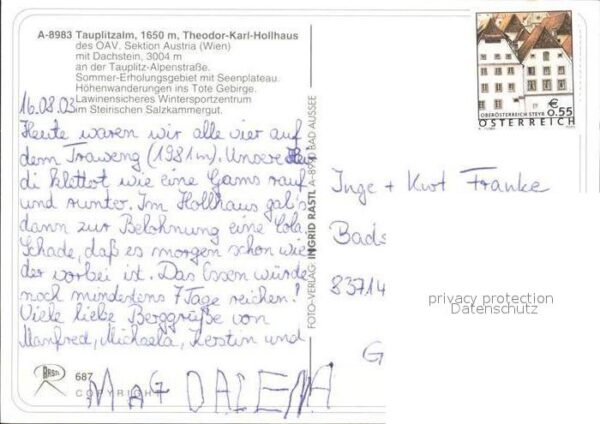 A-8983 Tauplitzalm, 1650 m, Theodor-Karl-Hollhaus
des ÖAV, Sektion Austria (Wien)
mit Dachstein, 3004 m
an der Tauplitz-Alpenstraße.
Sommer-Erholungsgebiet mit Seenplateau.
Höhenwanderungen ins Tote Gebirge.
Lawinensicheres Wintersportzentrum
im Steirischen Salzkammergut.
16.08.03
Heute waren wir alle vier auf
dem Traweng (1981m). Unsere Hei
di klettot wie eine Gams rauf
und runter. Im Hollhaus gab's
dann zur Belohnung eine Cola.
Schade, daß es morgen schon wie
der vorbei ist. Das Essen würde
noch mindestens 7 Tage reichen!
Viele liebe Berggrüße von
Manfred, Michaela, Kerstin und
MAGDALENA
RASTL
687
COPYRIGHT
FOTO-VERLAG INGRID RASTL A-8990 BAD AUSSEE
€ 0.55
OBERÖSTERREICH STEYR
ÖSTERREICH
Inge + Kurt Franke
Bads
83714
G
privacy protection
Datenschutz